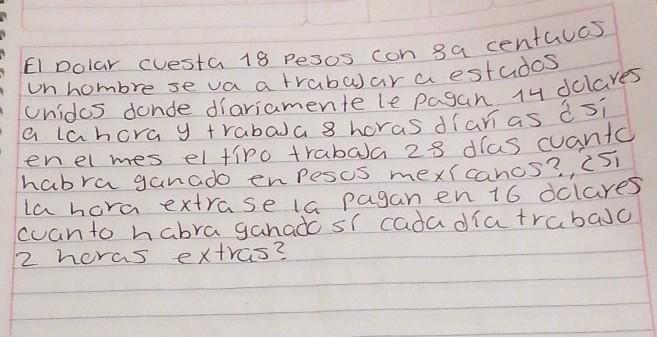 El Dolar cuesta 18 Pesos con 89 centavos
Un hombre se va a trabajar a estados
Unidos donde diariamente le pagan 14 dolares
a la hora y trabaja 8 horas diarias ¿si
en el mes el tipo trabaja 28 días cuanto
habra ganado en Pesos mexicanos?, ¿si
la hora extra se la pagan en 16 dolares
cuanto habra ganado si cada día trabajo
2 horas extras?